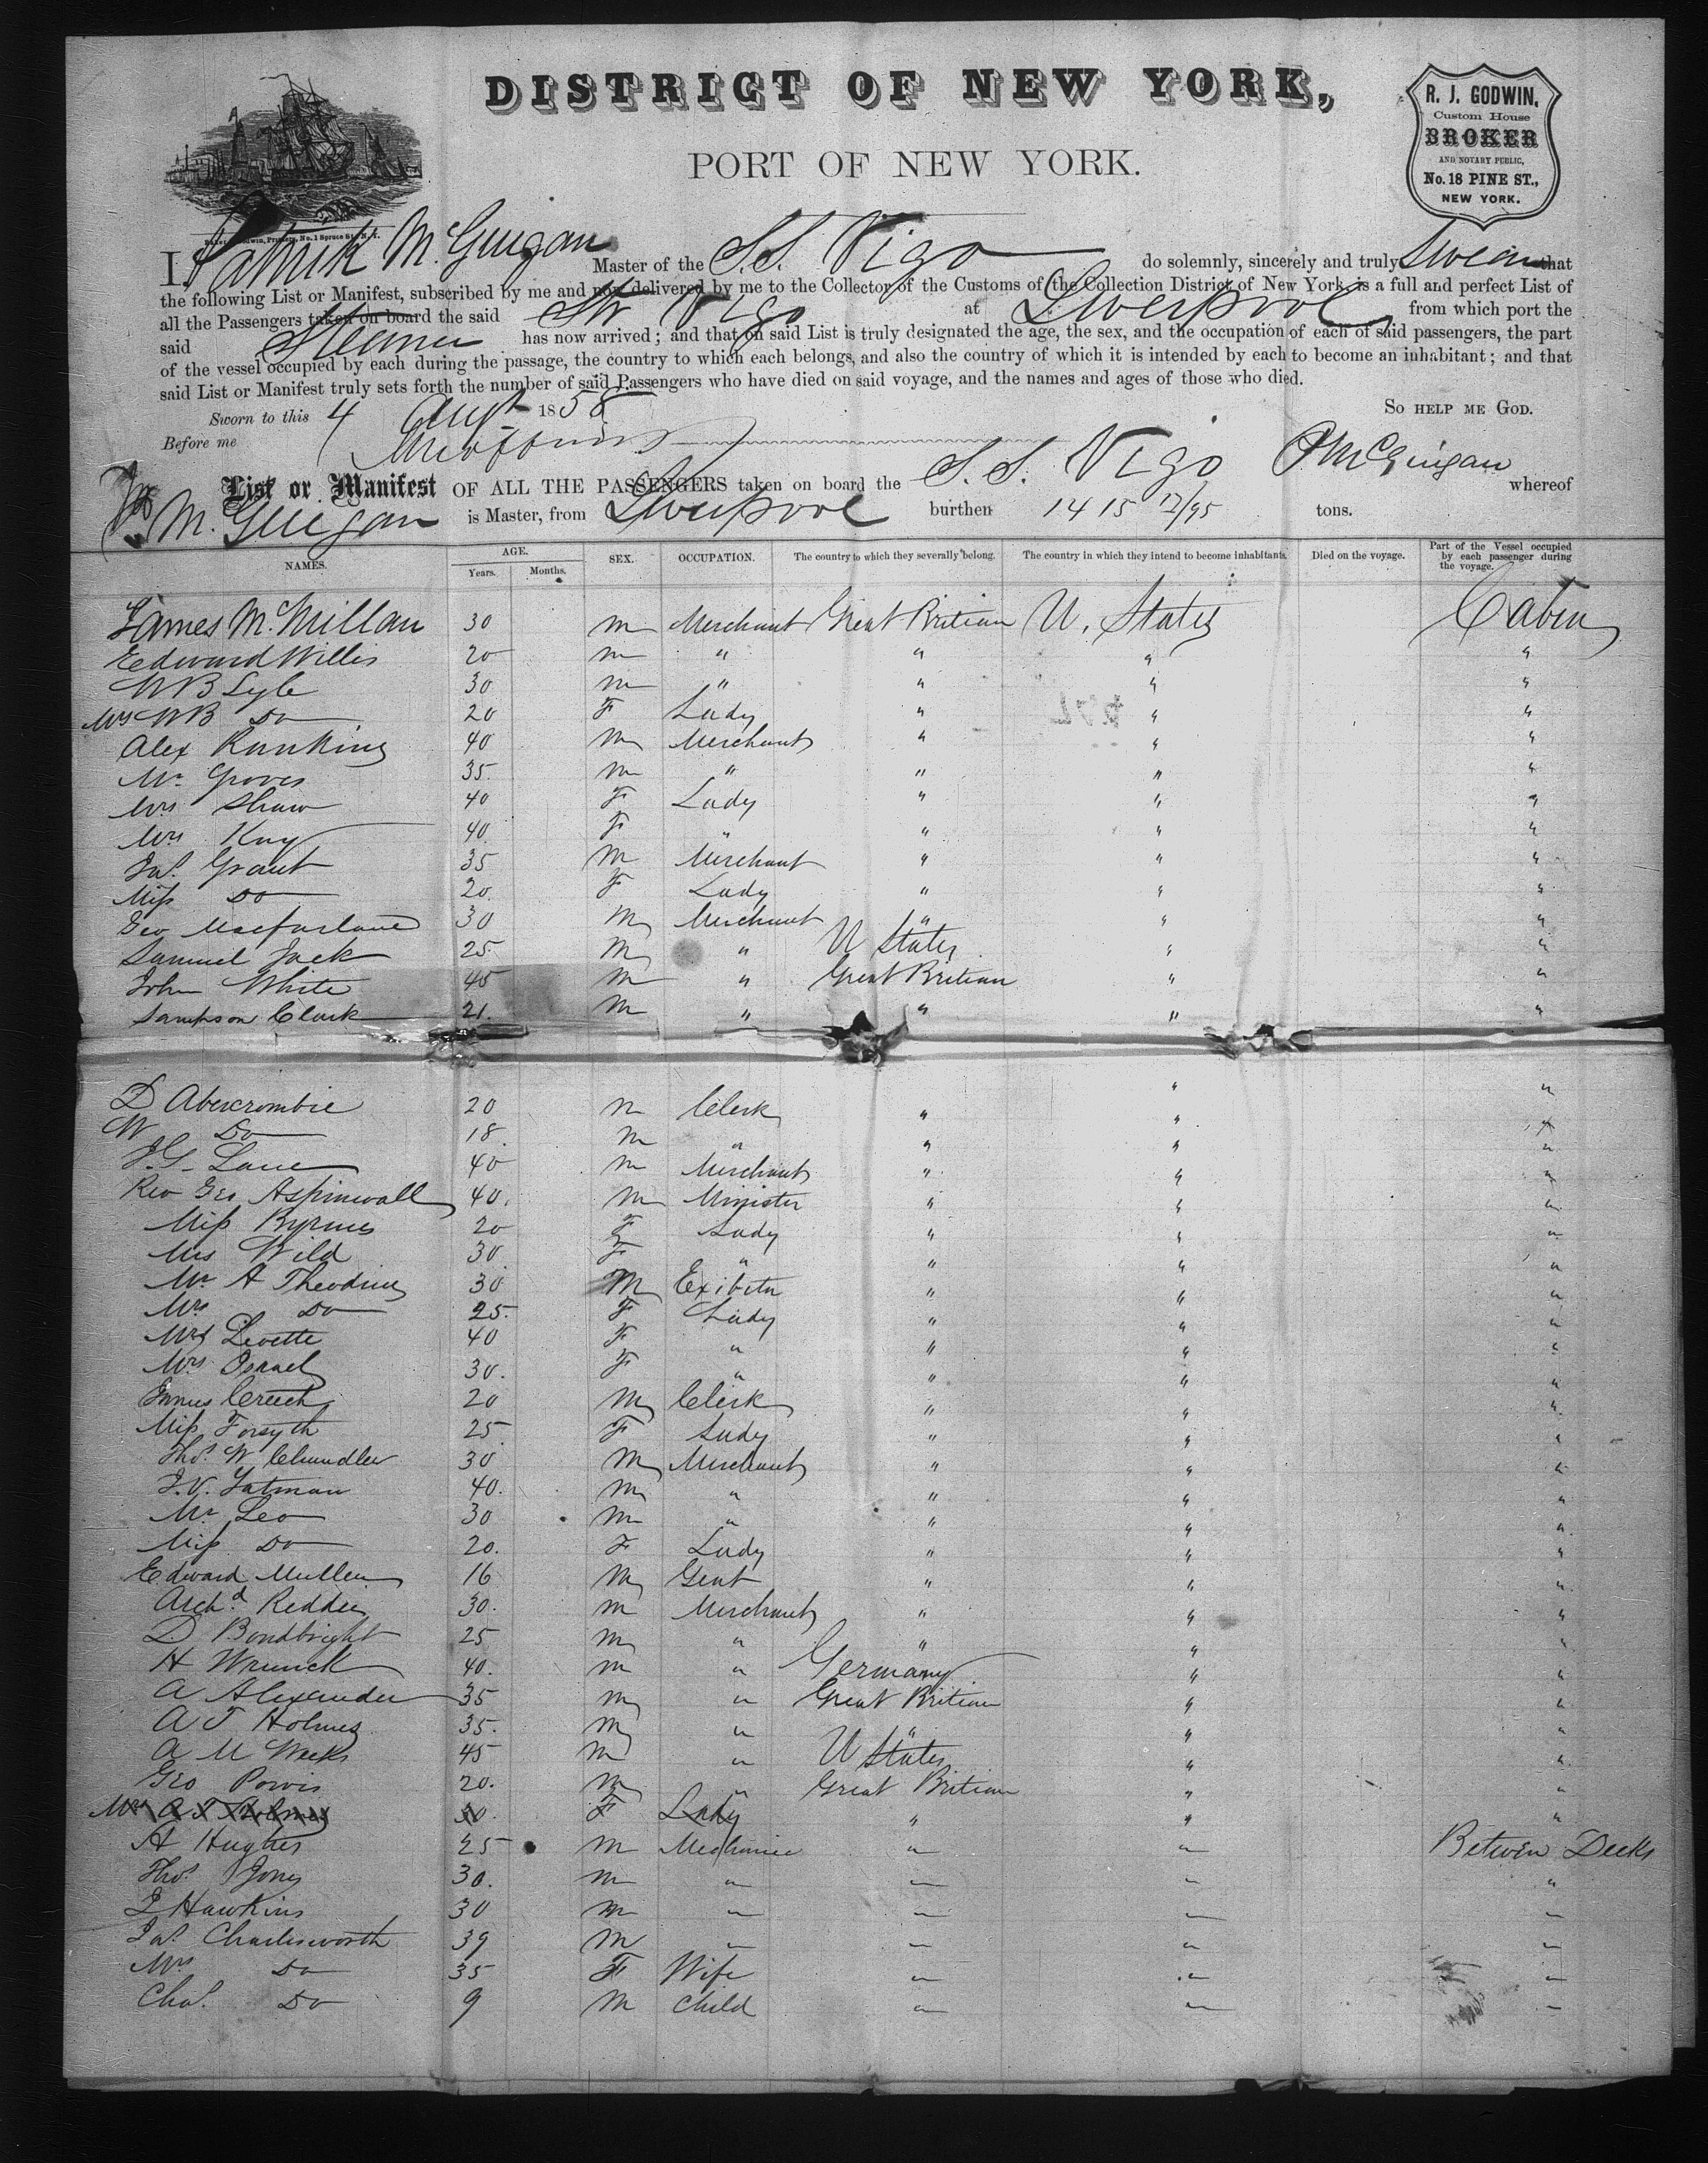 DISTRICT OF NEW YORK,
PORT OF NEW YORK.
R. J. GODWIN,
Custom House
BROKER
AND NOTARY PUBLIC,
No. 18 PINE ST.,
NEW YORK.
Baker & Godwin, Printers, No. 1 Spruce St., N. Y.
I, Patrick McGuigan Master of the S.S. Vigo do solemnly, sincerely and truly Swear that
the following List or Manifest, subscribed by me and now delivered by me to the Collector of the Customs of the Collection District of New York, is a full and perfect List of
all the Passengers taken on board the said Str Vigo at Liverpool from which port the
said Steamer has now arrived; and that on said List is truly designated the age, the sex, and the occupation of each of said passengers, the part
of the vessel occupied by each during the passage, the country to which each belongs, and also the country of which it is intended by each to become an inhabitant; and that
said List or Manifest truly sets forth the number of said Passengers who have died on said voyage, and the names and ages of those who died.
Sworn to this 4 Augt 1858 SO HELP ME GOD.
Before me
P McGuigan
List or Manifest OF ALL THE PASSENGERS taken on board the S. S. Vigo whereof
McGuigan is Master, from Liverpool burthen 1415 12/95 tons.
NAMES. AGE. Years. Months. SEX. OCCUPATION. The country to which they severally belong. The country in which they intend to become inhabitants. Died on the voyage. Part of the Vessel occupied by each passenger during the voyage.
James McMillan 30 m Merchant Great Britian U. States Cabin
Edward Willis 20 m " " " "
W B Lyle 30 m " " " "
Mrs W B Do 20 F Lady " " "
Alex Rankins 40 m Merchant " " "
Mr Groves 35 m " " " "
Mrs Shaw 40 F Lady " " "
Mrs Kay 40 F " " " "
Jas. Grant 35 m Merchant " " "
Miss Do 20 F Lady " " "
Geo Macfarlane 30 M Merchant " " "
Samuel Jack 25 M " U States " "
John White 45 M " Great Britian " "
Sampson Clark 21 M " " " "
D Abercrombie 20 m Clerk " " "
W Do 18 m " " " "
J. G. Lane 40 m Merchant " " "
Rev Geo Aspinwall 40 m Minister " " "
Miss Byrnes 20 F Lady " " "
Mrs Wild 30 F " " " "
Mr A Theodrus 30 M Exibitr " " "
Mrs Do 25 F Lady " " "
Mrs Levette 40 F " " " "
Mrs Israel 30 F " " " "
Creech 20 M Clerk " " "
Miss Forsyth 25 F Lady " " "
Thos. W Chandler 30 M Merchant " " "
J. V. Tatman 40 m " " " "
Mr Leo 30 m " " " "
Miss Do 20 F Lady " " "
Edward Mullen 16 M Gent " " "
Archd. Reddie 30 m Merchant " " "
D. Bondbright 25 m " " " "
H 40 m " Germany " "
A Alexander 35 m " Great Britian " "
A T Holmes 35 m " " " "
A M Weeks 45 m " U States " "
Geo Powis 20 m " Great Britian " "
Mrs A T Holmes 30 F Lady " " "
A Hughes 25 m Mechanic " " Betwen Decks
Thos. Jones 30 m " " " "
J Hawkins 30 m " " " "
Jas. Charlesworth 39 m " " " "
Mrs Do 35 F Wife " " "
Chas. Do 9 m Child " " "